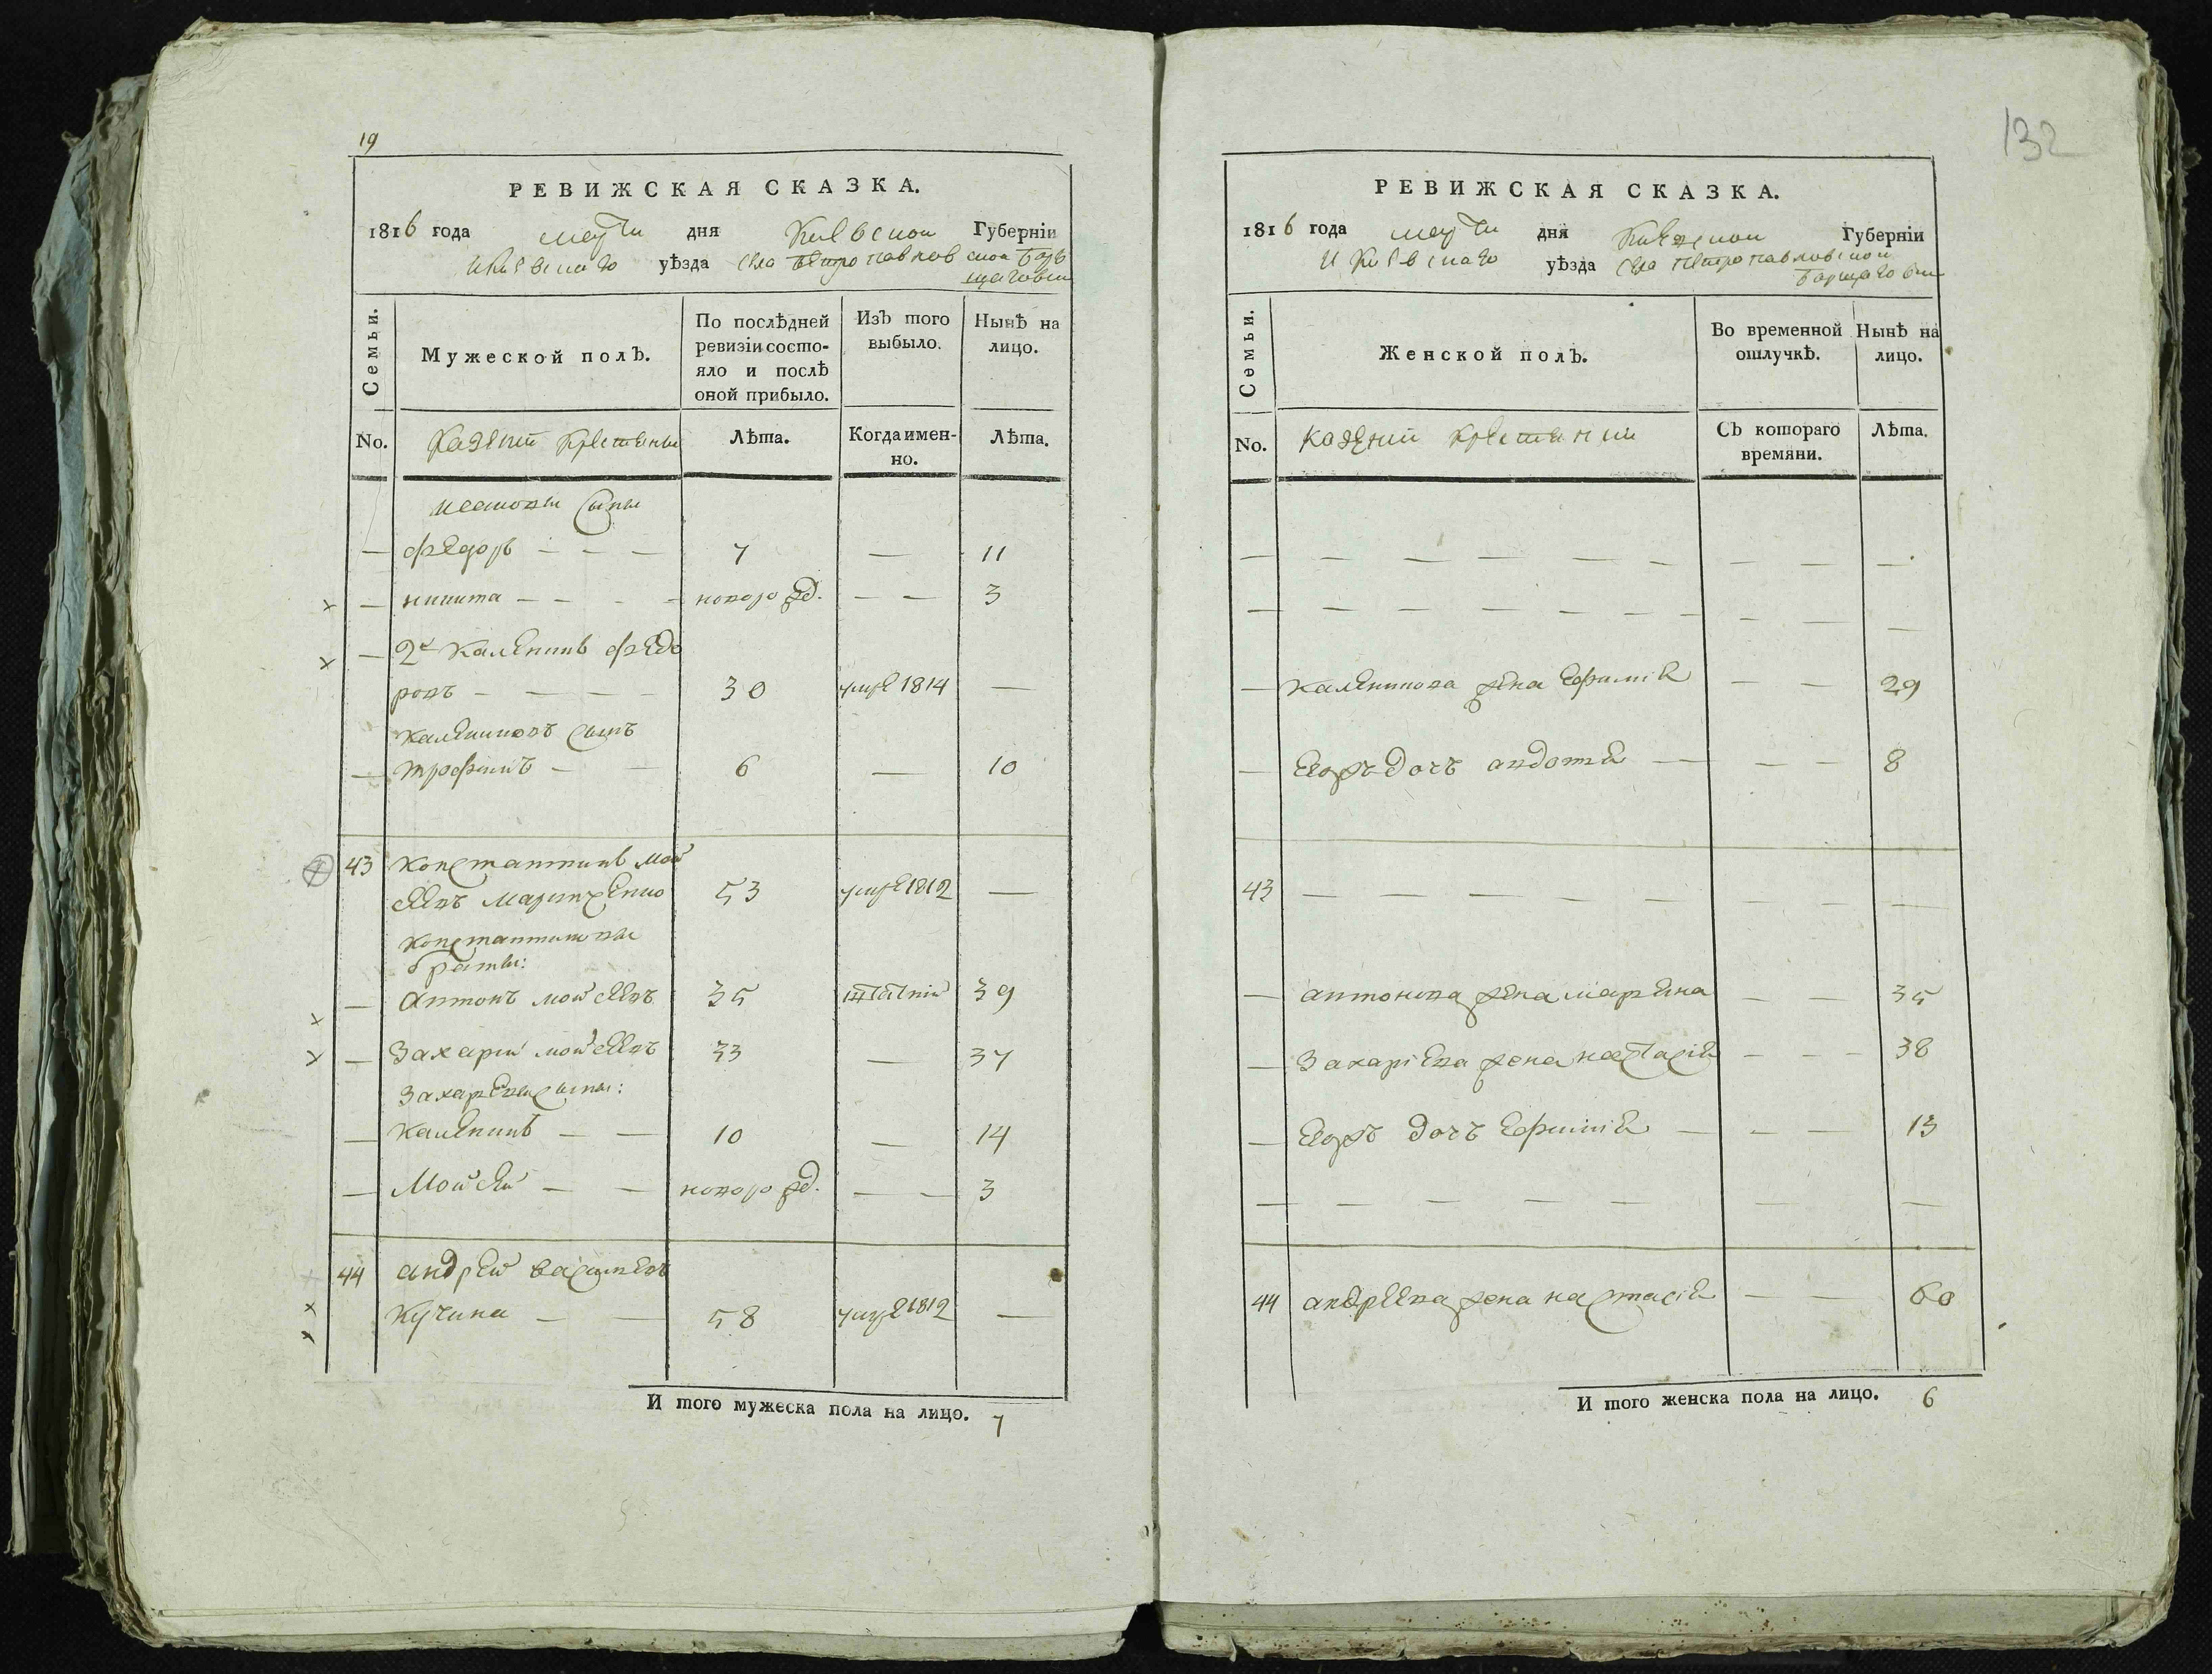 19
РЕВИЖСКАЯ СКАЗКА.
1816 года марта дня Киевской Губерніи
и Киевскаго уѣзда села Петропавловской Бор
щаговки
Семьи.
Мужеской полъ.
По послѣдней
ревизіи состо-
яло и послѣ
оной прибыло.
Изъ того
выбыло.
Нынѣ на
лицо.
No.
Казений крестяны
Лѣта.
Когда имен-
но.
Лѣта.
сыны
— федоръ - - — 7 — 11
— никита — - - - новоро жд. — — 3
— 2й Каленикъ федо
ровъ - — - — 30 умре 1814 —
Калениковъ сынъ
— трофимъ - — 6 — 10
43 Константинъ мой
сеевъ Марченко 53 умре 1812 —
Константиновы
браты:
— антонъ мойсеевъ 35 39
— Захарий мойсеевъ 33 — 37
Захариевы сыны:
— Каленикъ — — 10 — 14
— Мойсей — — новоро жд. — — 3
44 андрей василиевъ
Кучина — — 58 умре 1812 —
И того мужеска пола на лицо. 7
132
РЕВИЖСКАЯ СКАЗКА.
1816 года марта дня Киевской Губерніи
и Киевскаго уѣзда села Петропавловской
Борщаговки
Семьи.
Женской полъ.
Во временной
отлучкѣ.
Нынѣ на
лицо.
No.
казений крестяний
Съ котораго
времяни.
Лѣта.
— — — — — — — — — —
— — — — — — — — — —
— Каленикова жена Ефимія — — 29
— Еворъ дочъ авдотия — — — 8
43 — — — — — — — —
— антонова жена марина — — 35
— Захаріева жена настасія - - — 38
— Еворъ дочъ Ефимія — — — 13
— — — — — — — —
44 андреева жена настасія — — 60
И того женска пола на лицо. 6